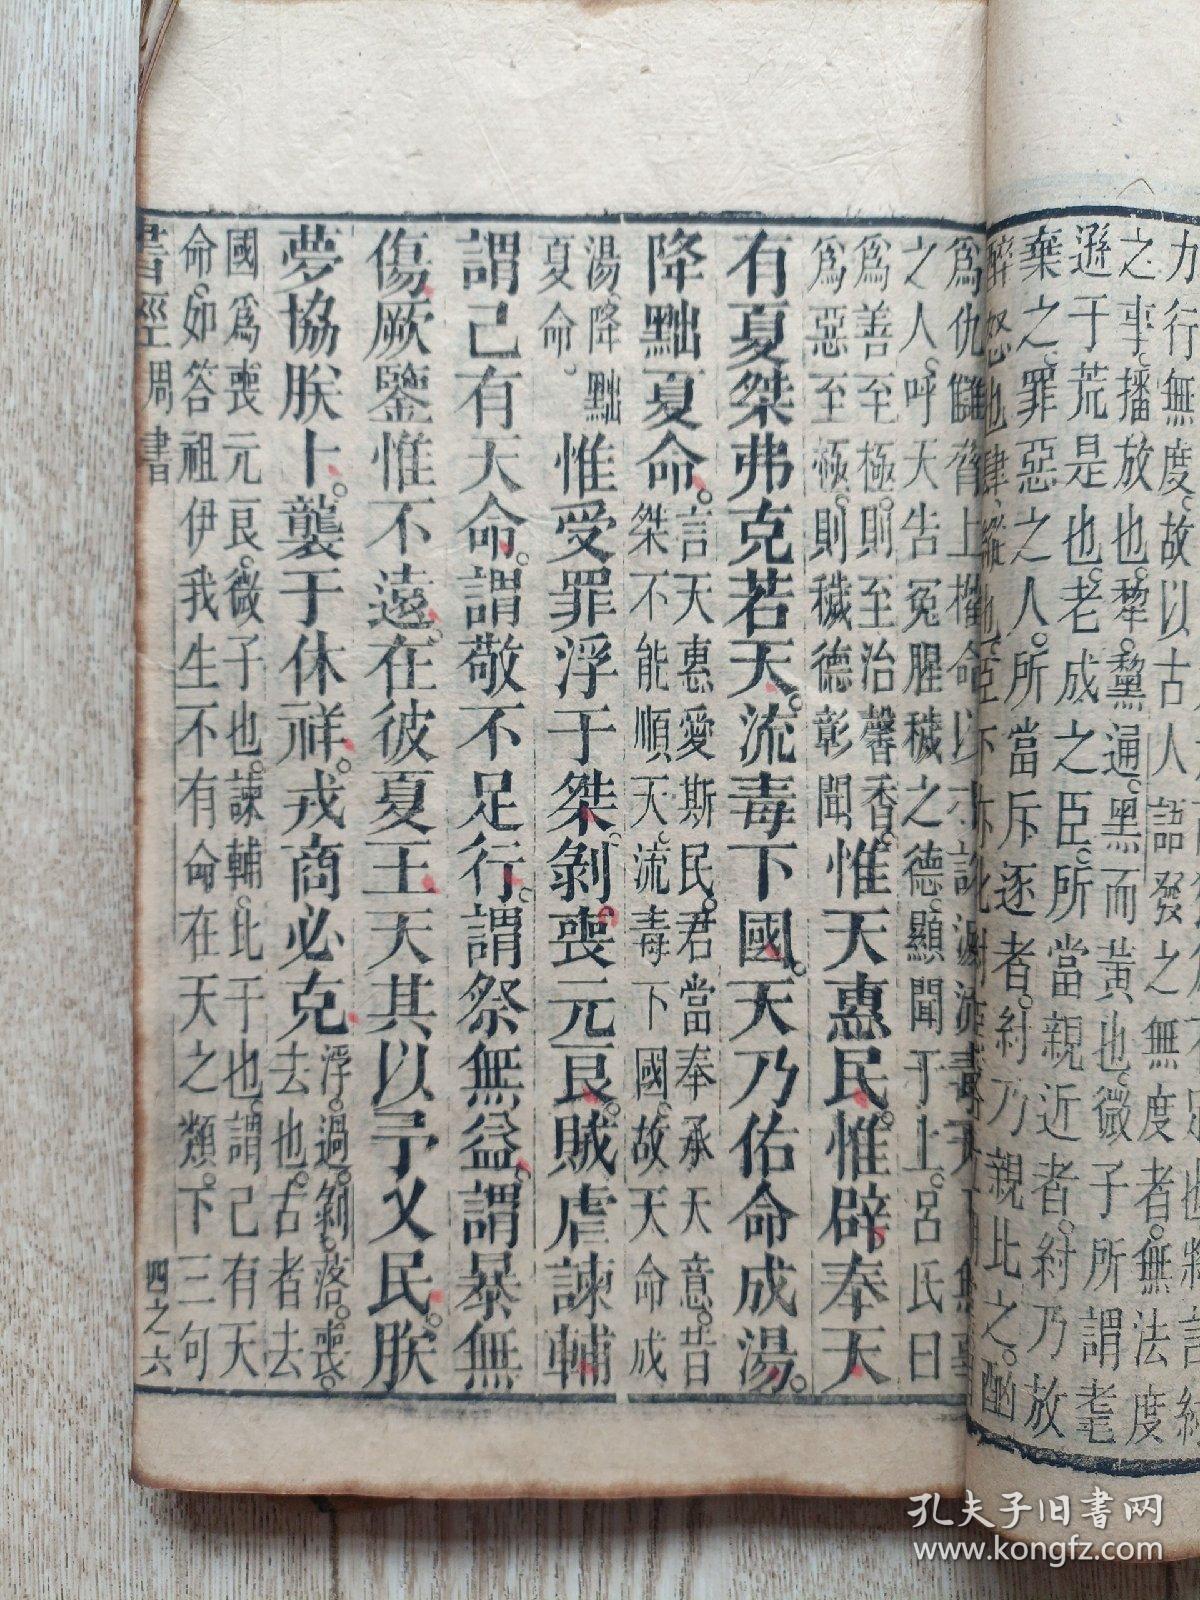 力行無度。故以古人
語發之無度者。無法度
之事。播放也。犂。黧通。黑而黃也。微子所謂耄
遜于荒是也。老成之臣。所當親近者。紂乃放
棄之。罪惡之人。所當斥逐者。紂乃親比之。酗
醉怒也。肆。縱也。臣下亦化紂
爲仇讎。脅上權命。以
之人。呼天告冤。腥穢之德。顯聞于上。呂氏曰
爲善至極。則至治馨香。
爲惡至極。則穢德彰聞
惟天惠民。惟辟奉天
有夏桀弗克若天。流毒下國。天乃佑命成湯。
降黜夏命。
言天惠愛斯民。君當奉承天意。昔
桀不能順天。流毒下國。故天命成
湯。降黜
夏命。
惟受罪浮于桀。剝。喪元良。賊虐諫輔
謂己有天命。謂敬不足行。謂祭無益。謂暴無
傷。厥鑒惟不遠。在彼夏王。天其以予乂民。朕
夢協朕卜。襲于休祥。戎商必克
浮。過。剝。落。喪。
去也。古者去
國爲喪元良。微子也。諫輔。比干也。謂己有天
命。如答祖伊我生不有命在天之類。下三句
書經周書
四之六
孔夫子旧书网
www.kongfz.com